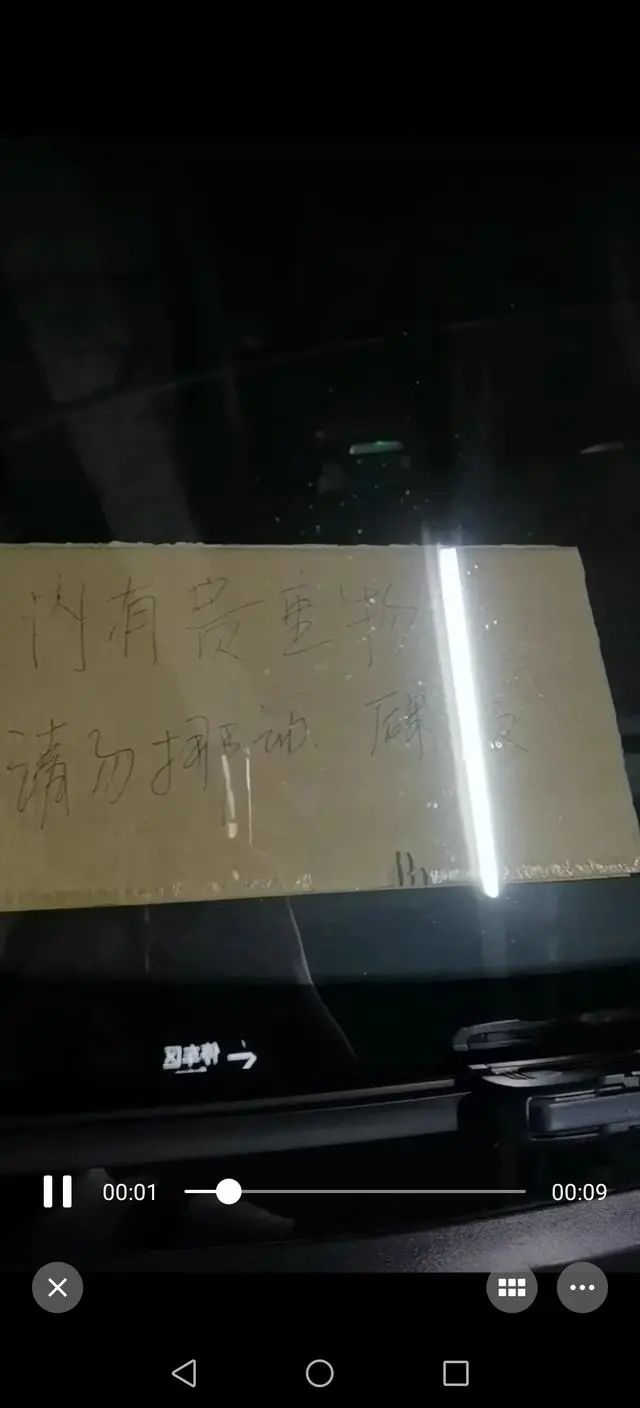 内有贵重物
请勿挪动. 后果
00:01
00:09